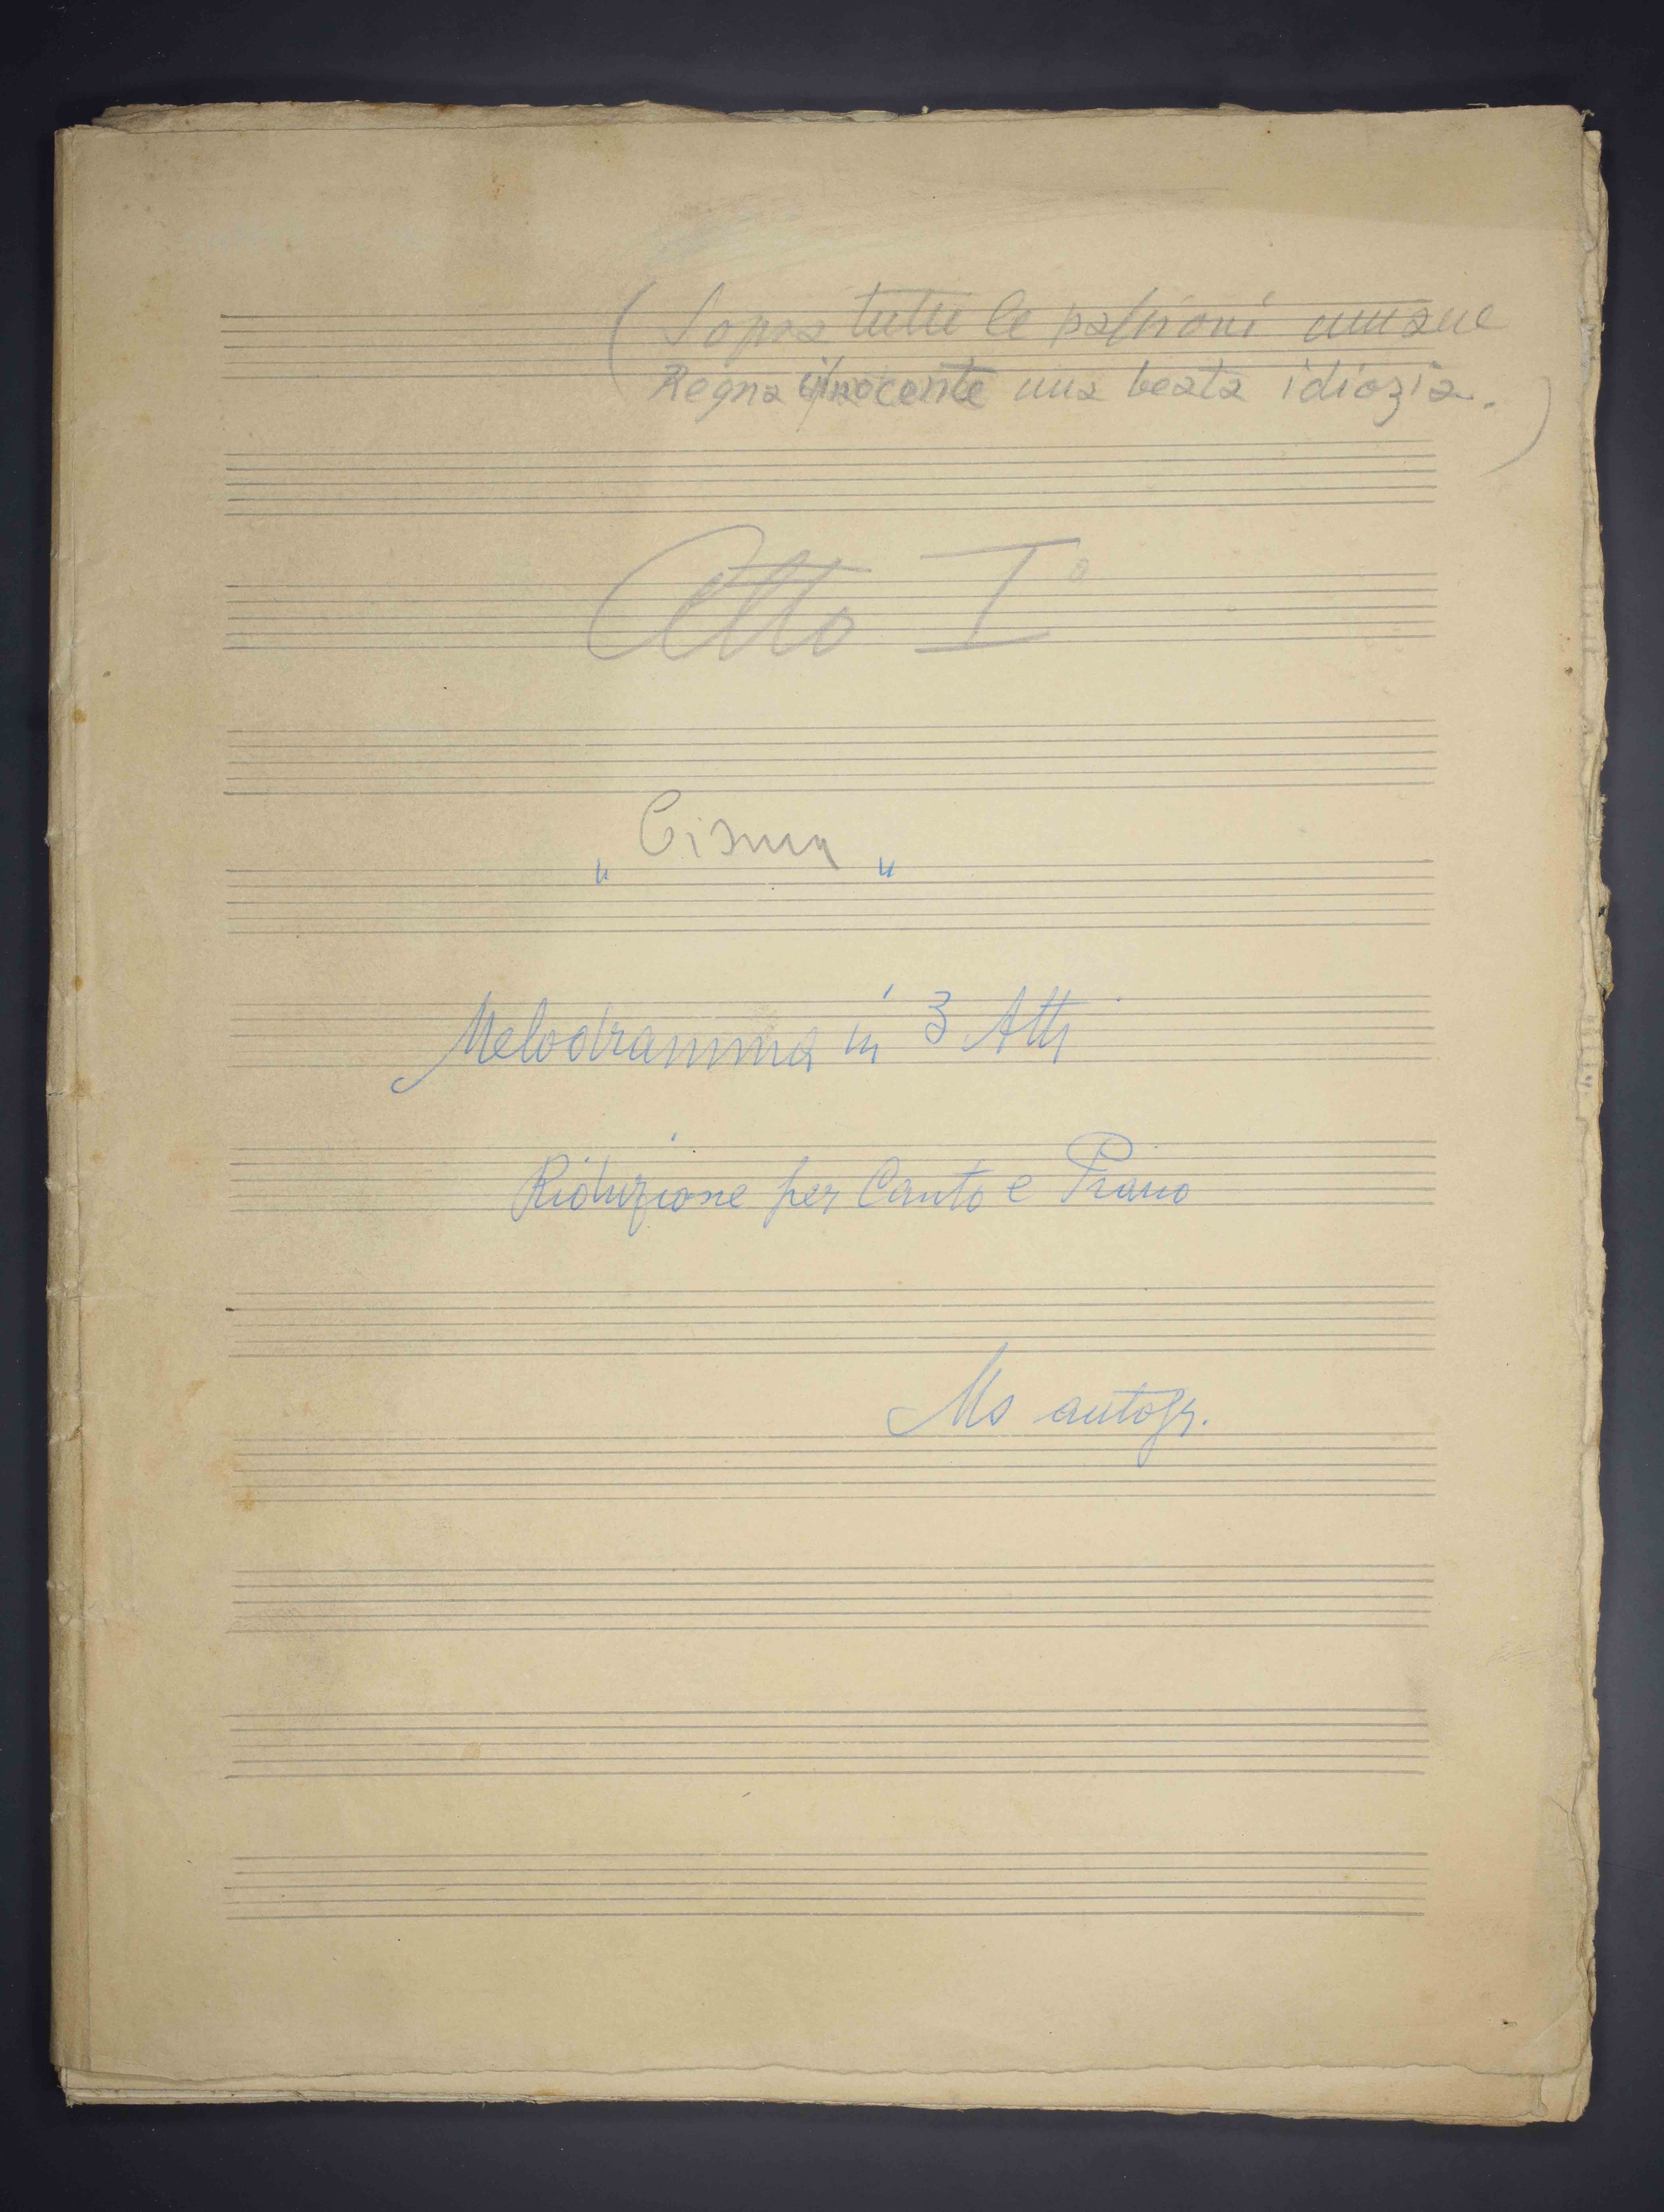 (Sopra tutte le passioni umane
Regna innocente una beata idiozia.)
Atto I°
"Cisma"
Melodramma in 3 Atti
Riduzione per Canto e Piano
Ms autogr.